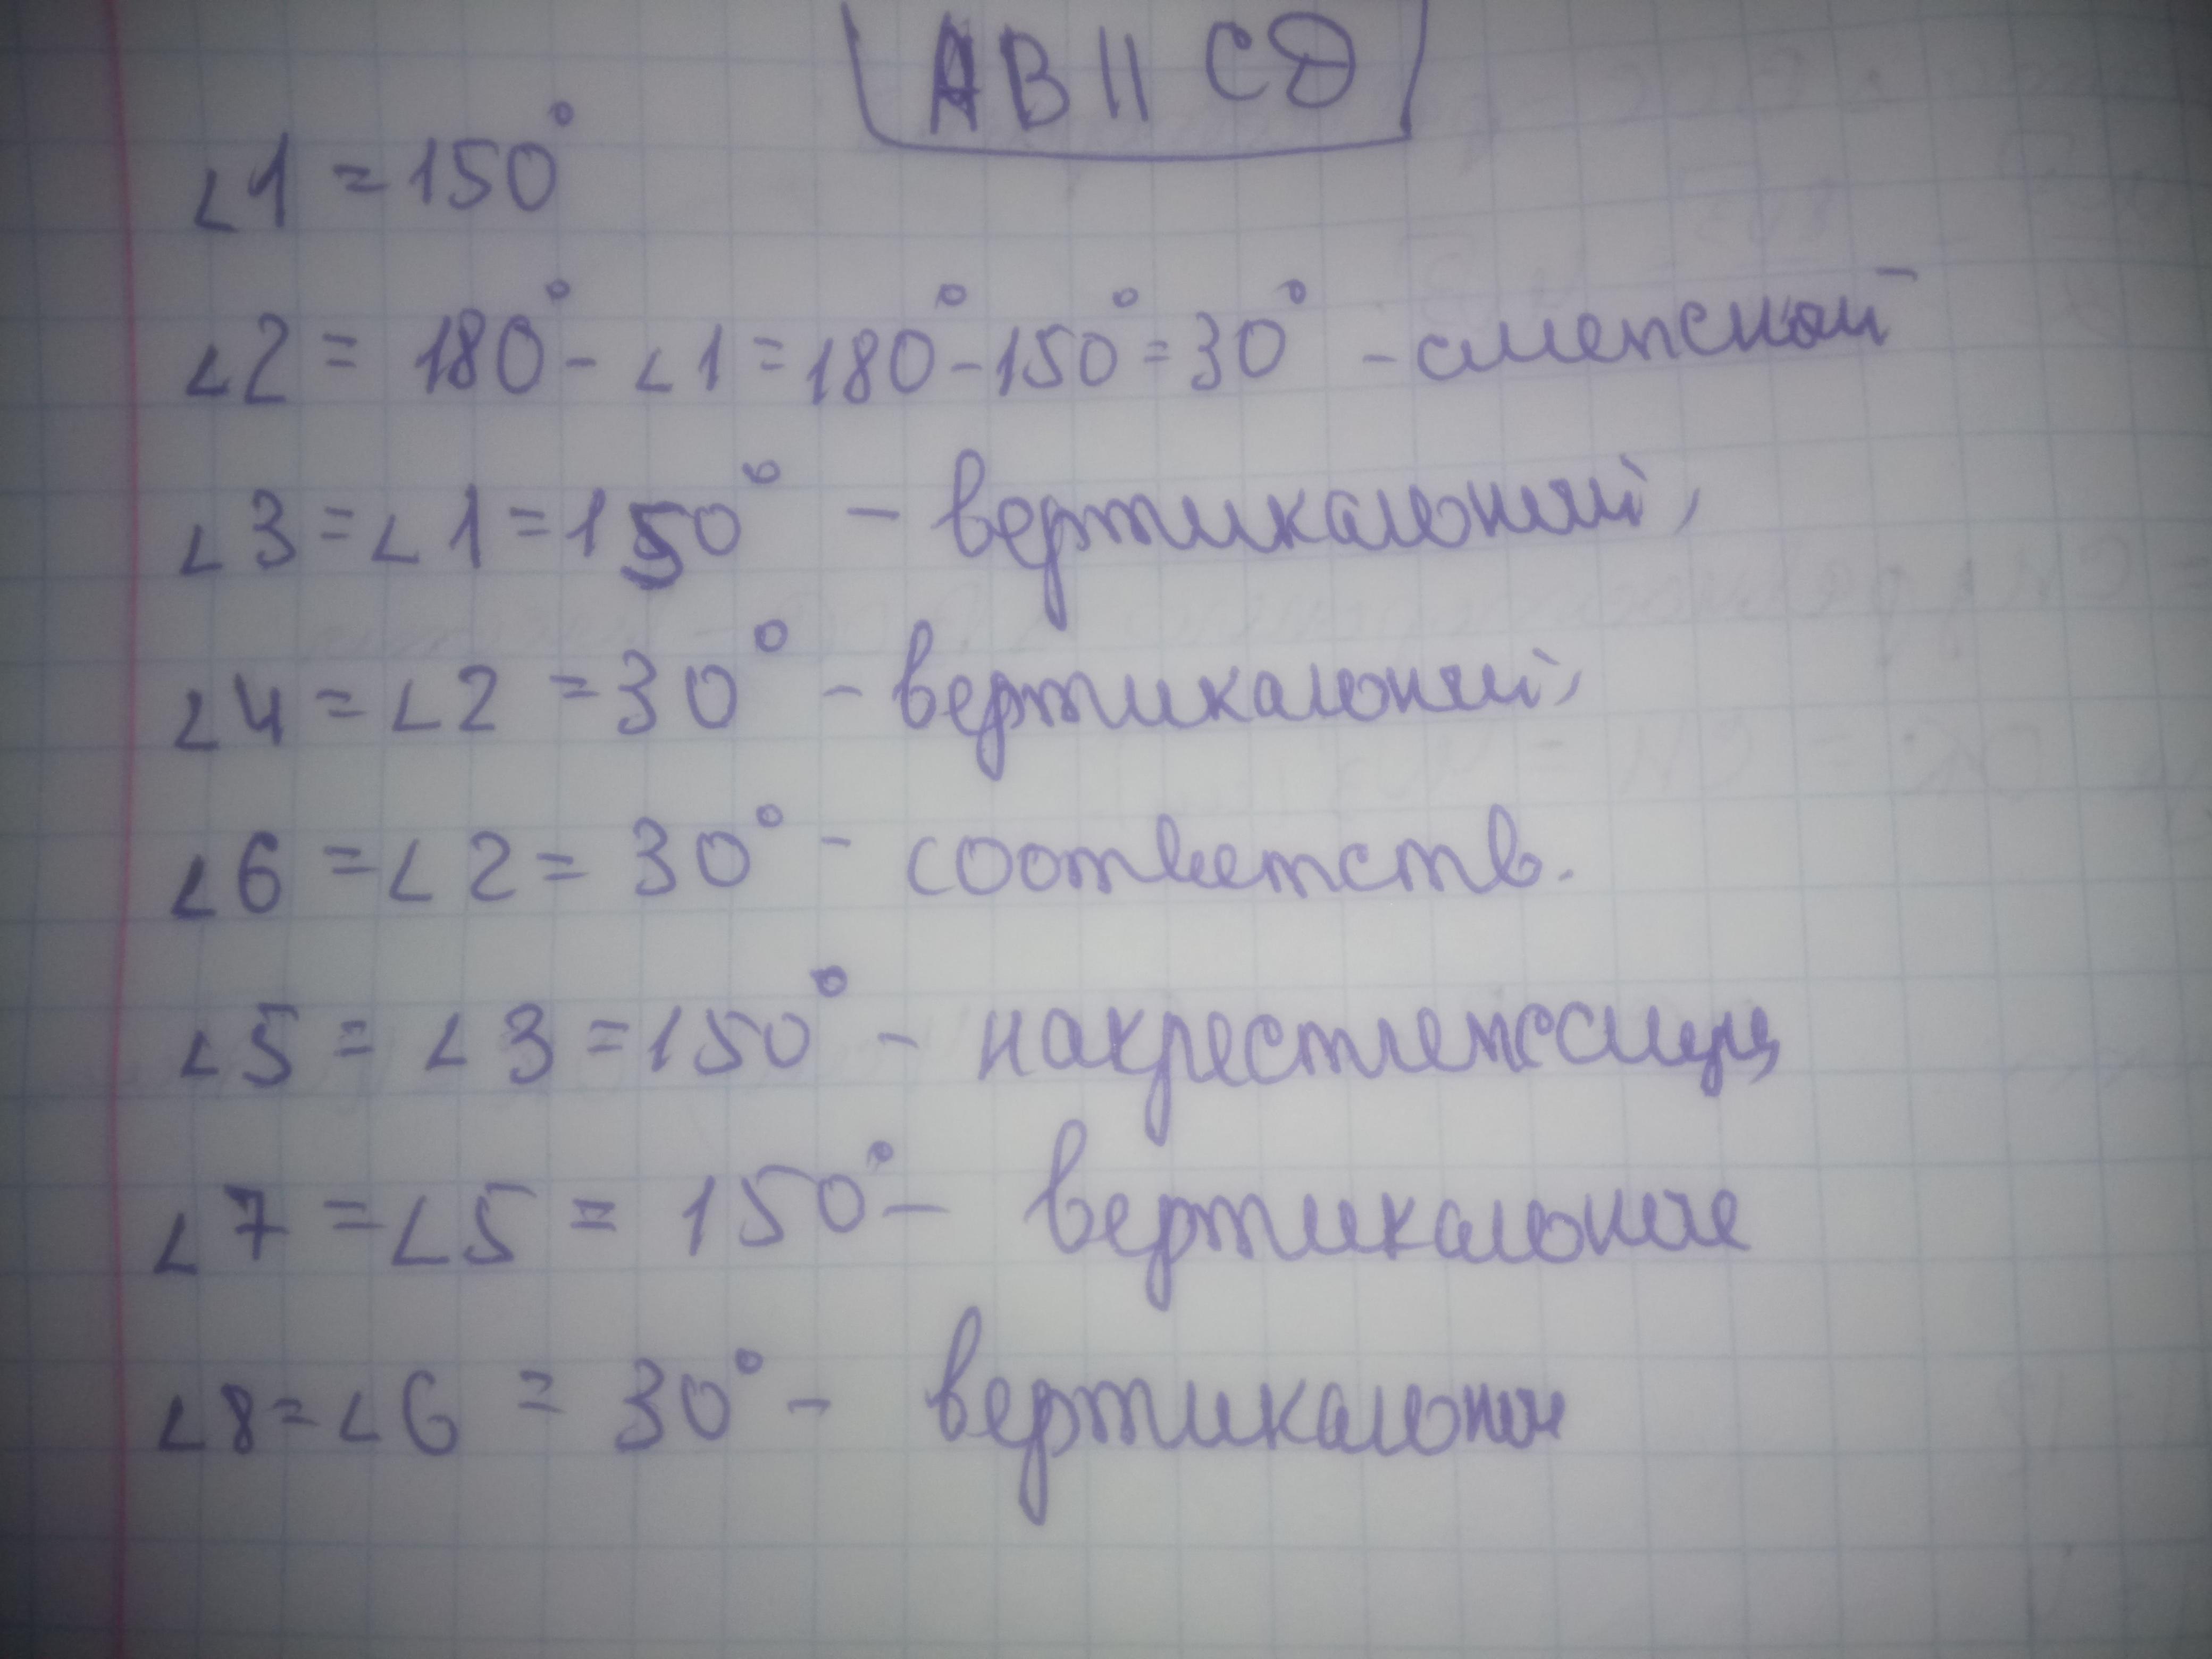 AB || CD
∠1 = 150°
∠2 = 180° - ∠1 = 180° - 150° = 30° - смежной
∠3 = ∠1 = 150° - вертикальный,
∠4 = ∠2 = 30° - вертикальный,
∠6 = ∠2 = 30° - соответств.
∠5 = ∠3 = 150° - накрестлежащ
∠7 = ∠5 = 150° - вертикальные
∠8 = ∠6 = 30° - вертикальн